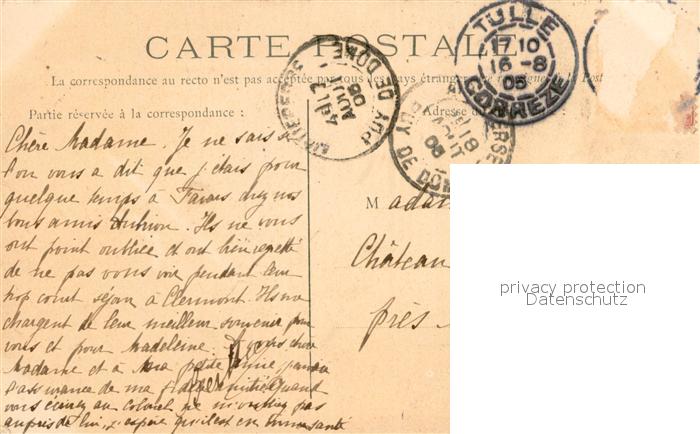 CARTE POSTALE
La correspondance au recto n'est pas acceptée par tous les pays étrangers
Post
Partie réservée à la correspondance :
Adresse
TULLE
17 10
16 - 8
05
CORREZE
PUY DE DOME
AOUT
05
PUY DE DOM
18
AOUT
05
Chère Madame. Je ne sais si
l'on vous a dit que j'étais pour
quelque temps à chez nos
bons amis Ils ne vous
ont point oubliée et ont bien regretté
de ne pas vous voir pendant leur
trop court séjour à Clermont. Ils me
chargent de leur meilleur souvenir pour
vous et pour Madeleine. chère
Madame et à Ma petite amie,
l'assurance de ma fidèle amitié Quand
vous au Colonel, ne m'oubliez pas
auprès de lui, j'espère qu'il est en bonne santé
Madam
Château
près
privacy protection
Datenschutz